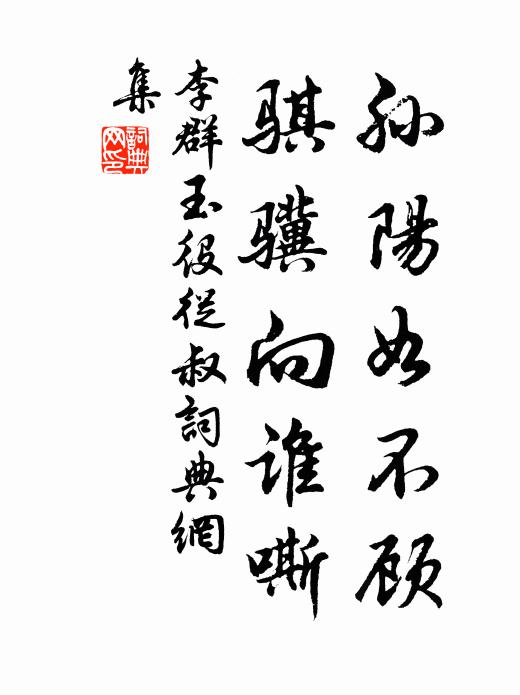 孙陽如不顾
骐骥向谁嘶
李群玉役從叔詞典網
集
詞典網印